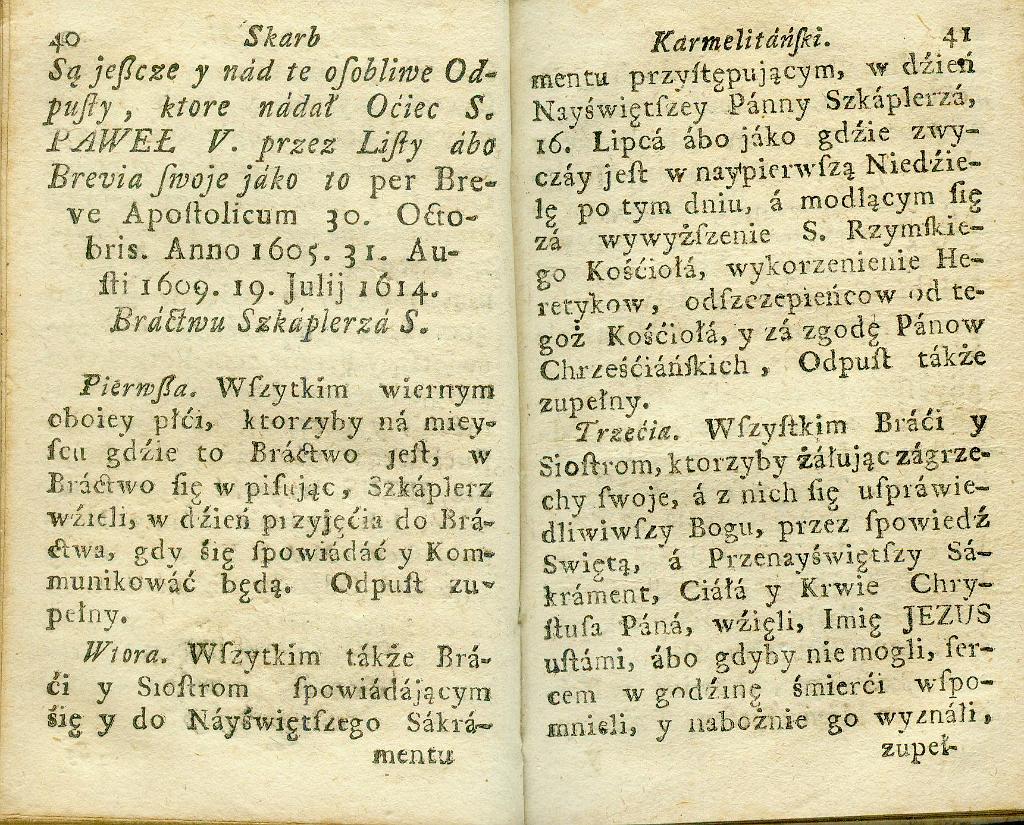 40 Skarb
Są jeßcze y nád te oſobliwe Od-
puſty, ktore nádał Oćiec S.
PAWEŁ V. przez Liſty ábo
Brevia ſwoje jáko to per Bre-
ve Apoſtolicum 30. Octo-
bris. Anno 1605. 31. Au-
ſti 1609. 19. Julij 1614.
Bráctwu Szkáplerzá S.
Pierwßa. Wſzytkim wiernym
oboiey płći, ktorzyby ná miey-
ſcu gdźie to Bráctwo jeſt, w
Bráctwo ſię w piſując, Szkáplerz
wźieli, w dźień przyjęćia do Brá-
ctwa, gdy śię ſpowiádáć y Kom-
munikowáć będą. Odpuſt zu-
pełny.
Wtora. Wſzytkim tákże Brá-
ći y Sioſtrom ſpowiádájącym
śię y do Náyświętſzego Sákrá-
mentu
Karmelitáńſki. 41
mentu przyſtępującym, w dźień
Nayświętſzey Pánny Szkáplerzá,
16. Lipcá ábo jáko gdźie zwy-
czáy jeſt w naypierwſzą Niedźie-
lę po tym dniu, á modlącym ſię
zá wywyżſzenie S. Rzymſkie-
go Kośćiołá, wykorzenienie He-
retykow, odſzczepieńcow od te-
goż Kośćiołá, y zá zgodę Pánow
Chrześćiáńſkich, Odpuſt tákże
zupełny.
Trzećia. Wſzyſtkim Bráći y
Sioſtrom, ktorzyby żáłując zá grze-
chy ſwoje, á z nich ſię uſpráwie-
dliwiwſzy Bogu, przez ſpowiedź
Swiętą, á Przenayświętſzy Sá-
kráment, Ciáłá y Krwie Chry-
ſtuſa Páná, wźięli, Imię JEZUS
uſtámi, ábo gdyby nie mogli, ſer-
cem w godźinę śmierći wſpo-
mnieli, y nabożnie go wyználi,
zupeł-